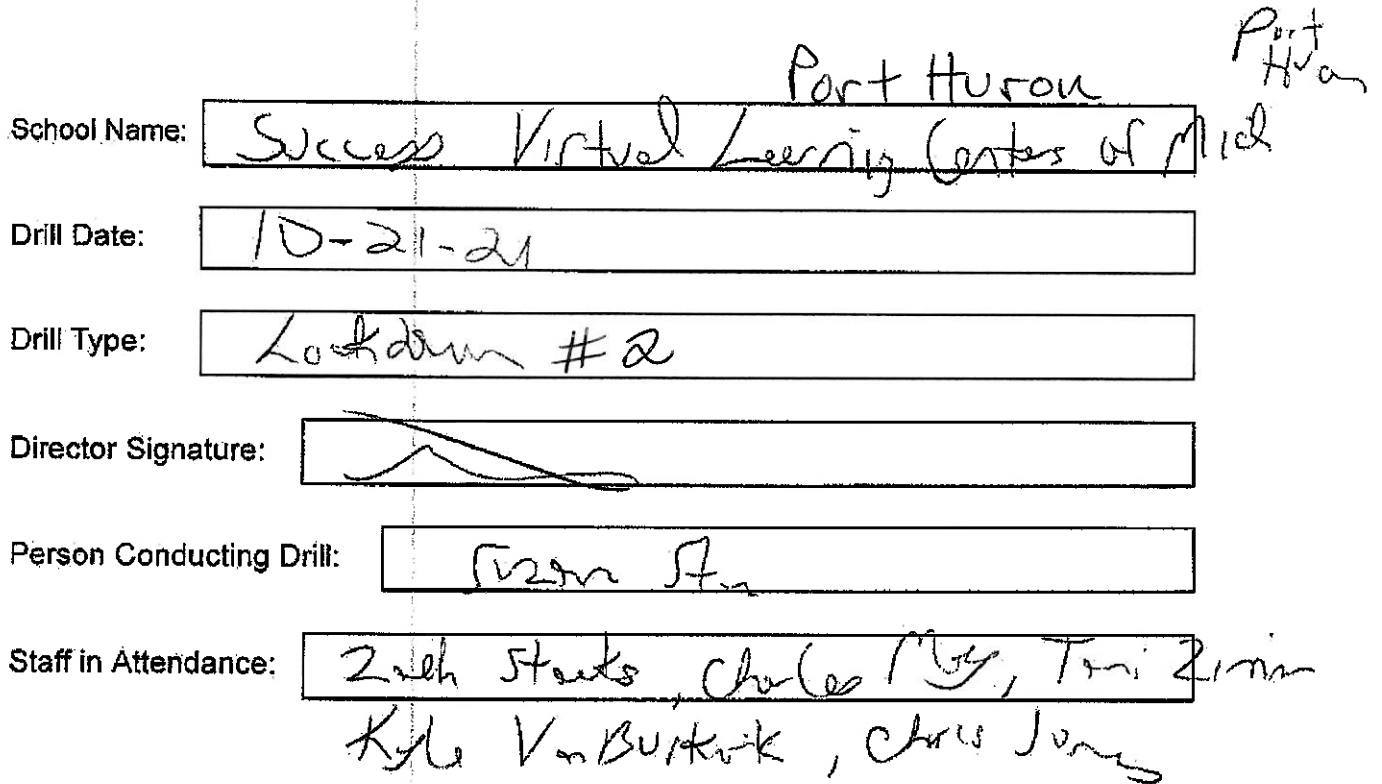 Port
Huron
Port Huron
School Name: Success Virtual Learning Centers of Mich
Drill Date: 10-21-21
Drill Type: Lockdown #2
Director Signature:
Person Conducting Drill:
Staff in Attendance: Zach, Charles, Toni
Kyle VanBuskirk, Chris Jones